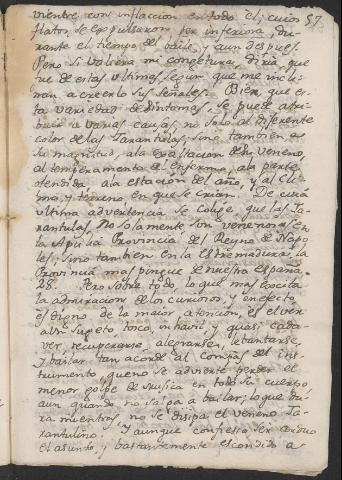 57
vientre con inflaccion en todo el; cuios
flatos, se expulsaron per inferiora, du-
rante el tiempo del baile, y aun despues.
Pero si valiera mi congetura, diria, que
fue de estas ultimas segun que me incli-
nan a creerlo sus señales. Bien que es-
ta variedad de sintomas, se puede atri-
buir a varias causas, no solo al diferente
color de las Tarantolas, sino tambien a
su magnitud, ala exaltacion de su veneno,
al temperamento del enfermo, ala parte
ofendida ala estacion del año, y al Cli-
ma, y terreno, en que se crian. De cuia
ultima advertencia se Colige, que las Ta-
rantulas, no solamente son venenosas en
la Apulia Provincia del Reyno de Napo-
les; sino tambien en la Estremadura, la
Provincia mas pingue de nuestra España.
28. Pero sobre todo, lo que mas excita
la admiracion de los curiosos, y en efecto
es digno de la maior atencion, es el ver
a un sugeto tosco, inhavil, y quasi cada-
ver, recuperarse, alegrarse, lebantarse,
y bailar tan acorde al Compas del ins-
trumento, que no se advierte perder el
menor golpe de Musica en todo su cuerpo,
aun quando no salga a bailar; lo que du-
ra mientras no se disipa el veneno Ta-
rantulino. Y aunque confieso ser arduo
el asunto, y bastantemente escondido a